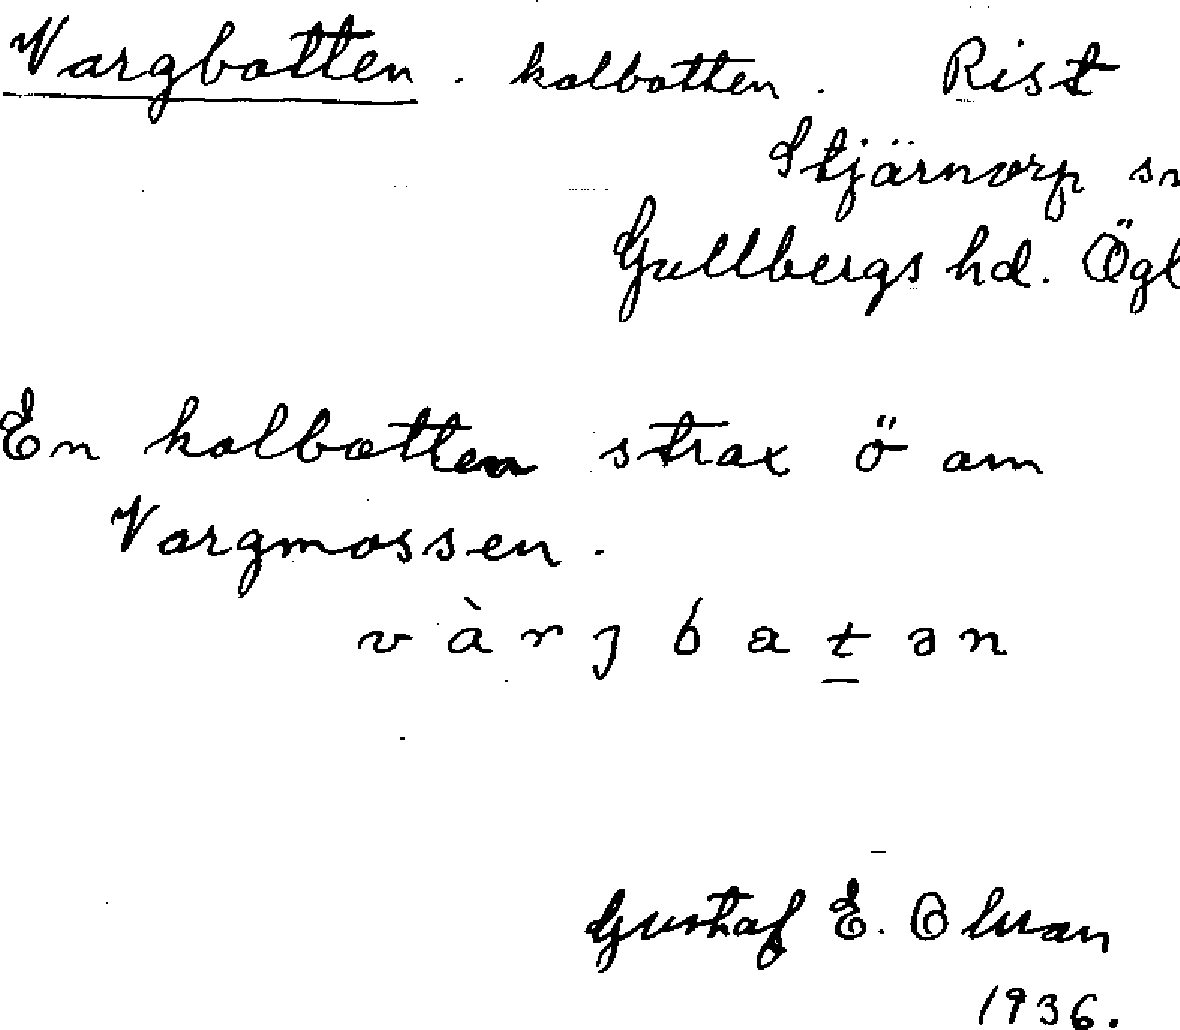 Vargbotten . kolbotten . Rist
Stjärnorp sn
Gullbergs hd. Ögl
En kolbotten strax ö om
Vargmossen .
v à r j b a t ə n
Gustaf E. Olsson
1936.